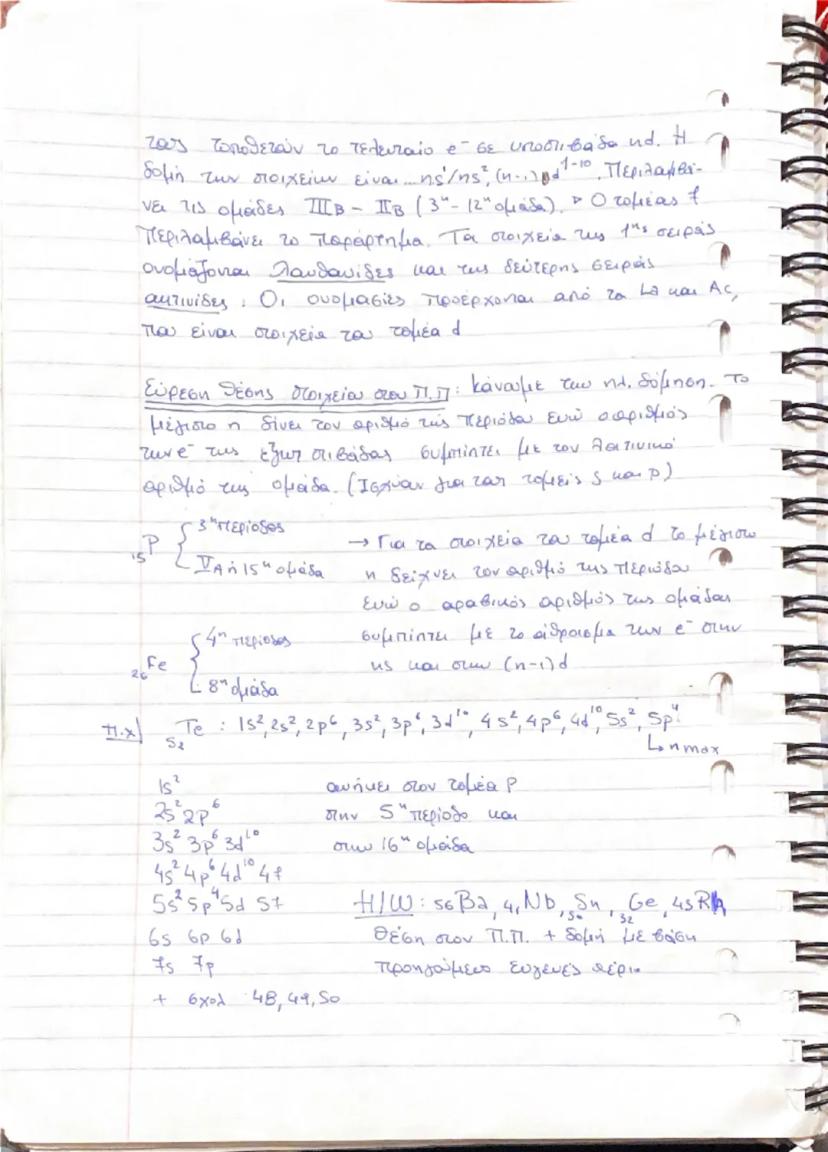 τους τοποθετούν το τελευταίο e⁻ σε υποστιβάδα nd. Η
δομή των στοιχείων είναι ... ns¹/ns², (n-1)d¹⁻¹⁰. Περιλαμβά-
νει τις ομάδες IIIB - IIB (3η - 12η ομάδα). ▹ Ο τομέας f
περιλαμβάνει το παράρτημα. Τα στοιχεία της 1ης σειράς
ονομάζονται λανθανίδες και της δεύτερης σειράς
ακτινίδες. Οι ονομασίες προέρχονται από τα La και Ac,
που είναι στοιχεία του τομέα d
Εύρεση θέσης στοιχείου στον Π.Π: κάνουμε την ηλ. δόμηση. Το
μέγιστο n δίνει τον αριθμό της περιόδου ενώ ο αριθμός
των e⁻ της εξωτ στιβάδας συμπίπτει με τον λατινικό
αριθμό της ομάδας. (Ισχύουν για τους τομείς s και p)
₁₅P { 3η περίοδος
VA ή 15η ομάδα
→ Για τα στοιχεία του τομέα d το μέγιστο
n δείχνει τον αριθμό της περιόδου
ενώ ο αραβικός αριθμός της ομάδας
συμπίπτει με το άθροισμα των e⁻ στην
ns και στην (n-1)d
₂₆Fe { 4η περίοδος
8η ομάδα
π.χ) ₅₂Te : 1s², 2s², 2p⁶, 3s², 3p⁶, 3d¹⁰, 4s², 4p⁶, 4d¹⁰, 5s², 5p⁴
↳ nmax
1s²
2s² 2p⁶
3s² 3p⁶ 3d¹⁰
4s² 4p⁶ 4d¹⁰ 4f
5s² 5p⁴ 5d 5f
6s 6p 6d
7s 7p
+ σχολ 48, 49, 50
ανήκει στον τομέα P
στην 5η περίοδο και
στην 16η ομάδα
H/W: ₅₆Ba, ₄₁Nb, ₅₀Sn, ₃₂Ge, ₄₅Rh
θέση στον Π.Π. + δομή με βάση
προηγούμενο ευγενές αέριο